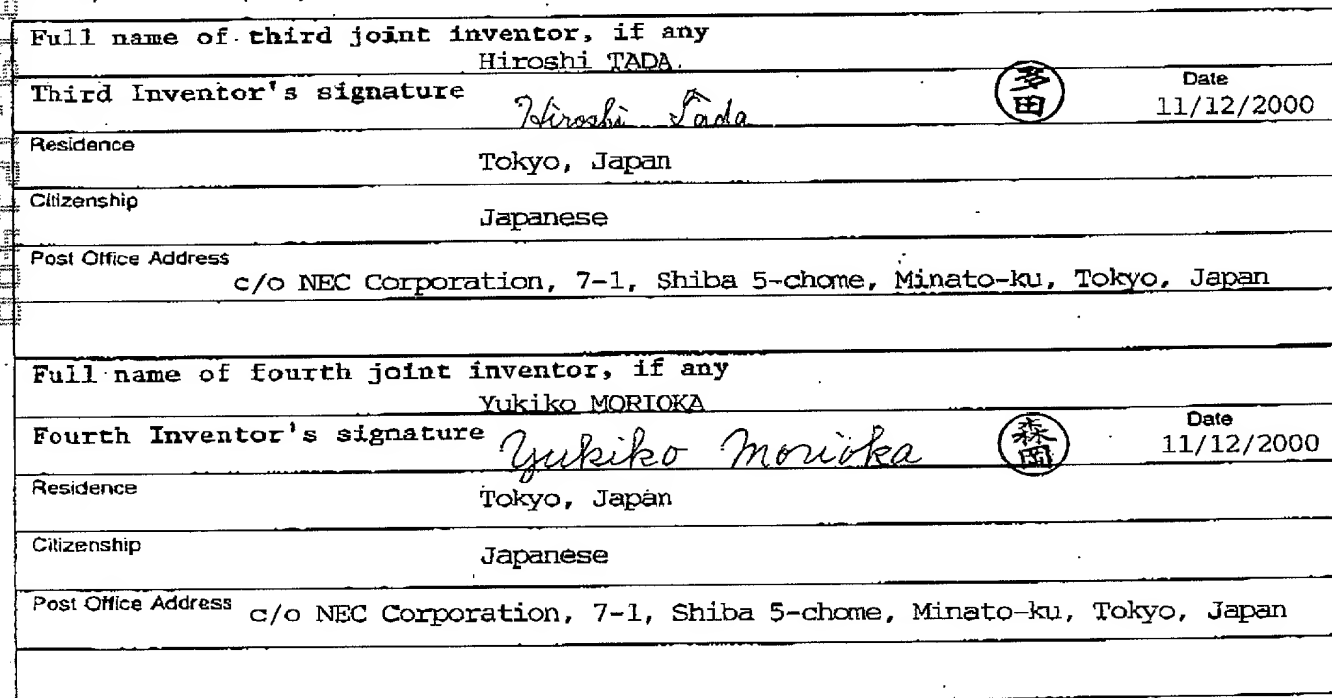 Full name of third joint inventor, if any
Hiroshi TADA
Third Inventor's signature Hiroshi Tada 多田 Date
11/12/2000
Residence
Tokyo, Japan
Citizenship
Japanese
Post Office Address
c/o NEC Corporation, 7-1, Shiba 5-chome, Minato-ku, Tokyo, Japan
Full name of fourth joint inventor, if any
Yukiko MORIOKA
Fourth Inventor's signature Yukiko Morioka 森岡 Date
11/12/2000
Residence
Tokyo, Japan
Citizenship
Japanese
Post Office Address c/o NEC Corporation, 7-1, Shiba 5-chome, Minato-ku, Tokyo, Japan